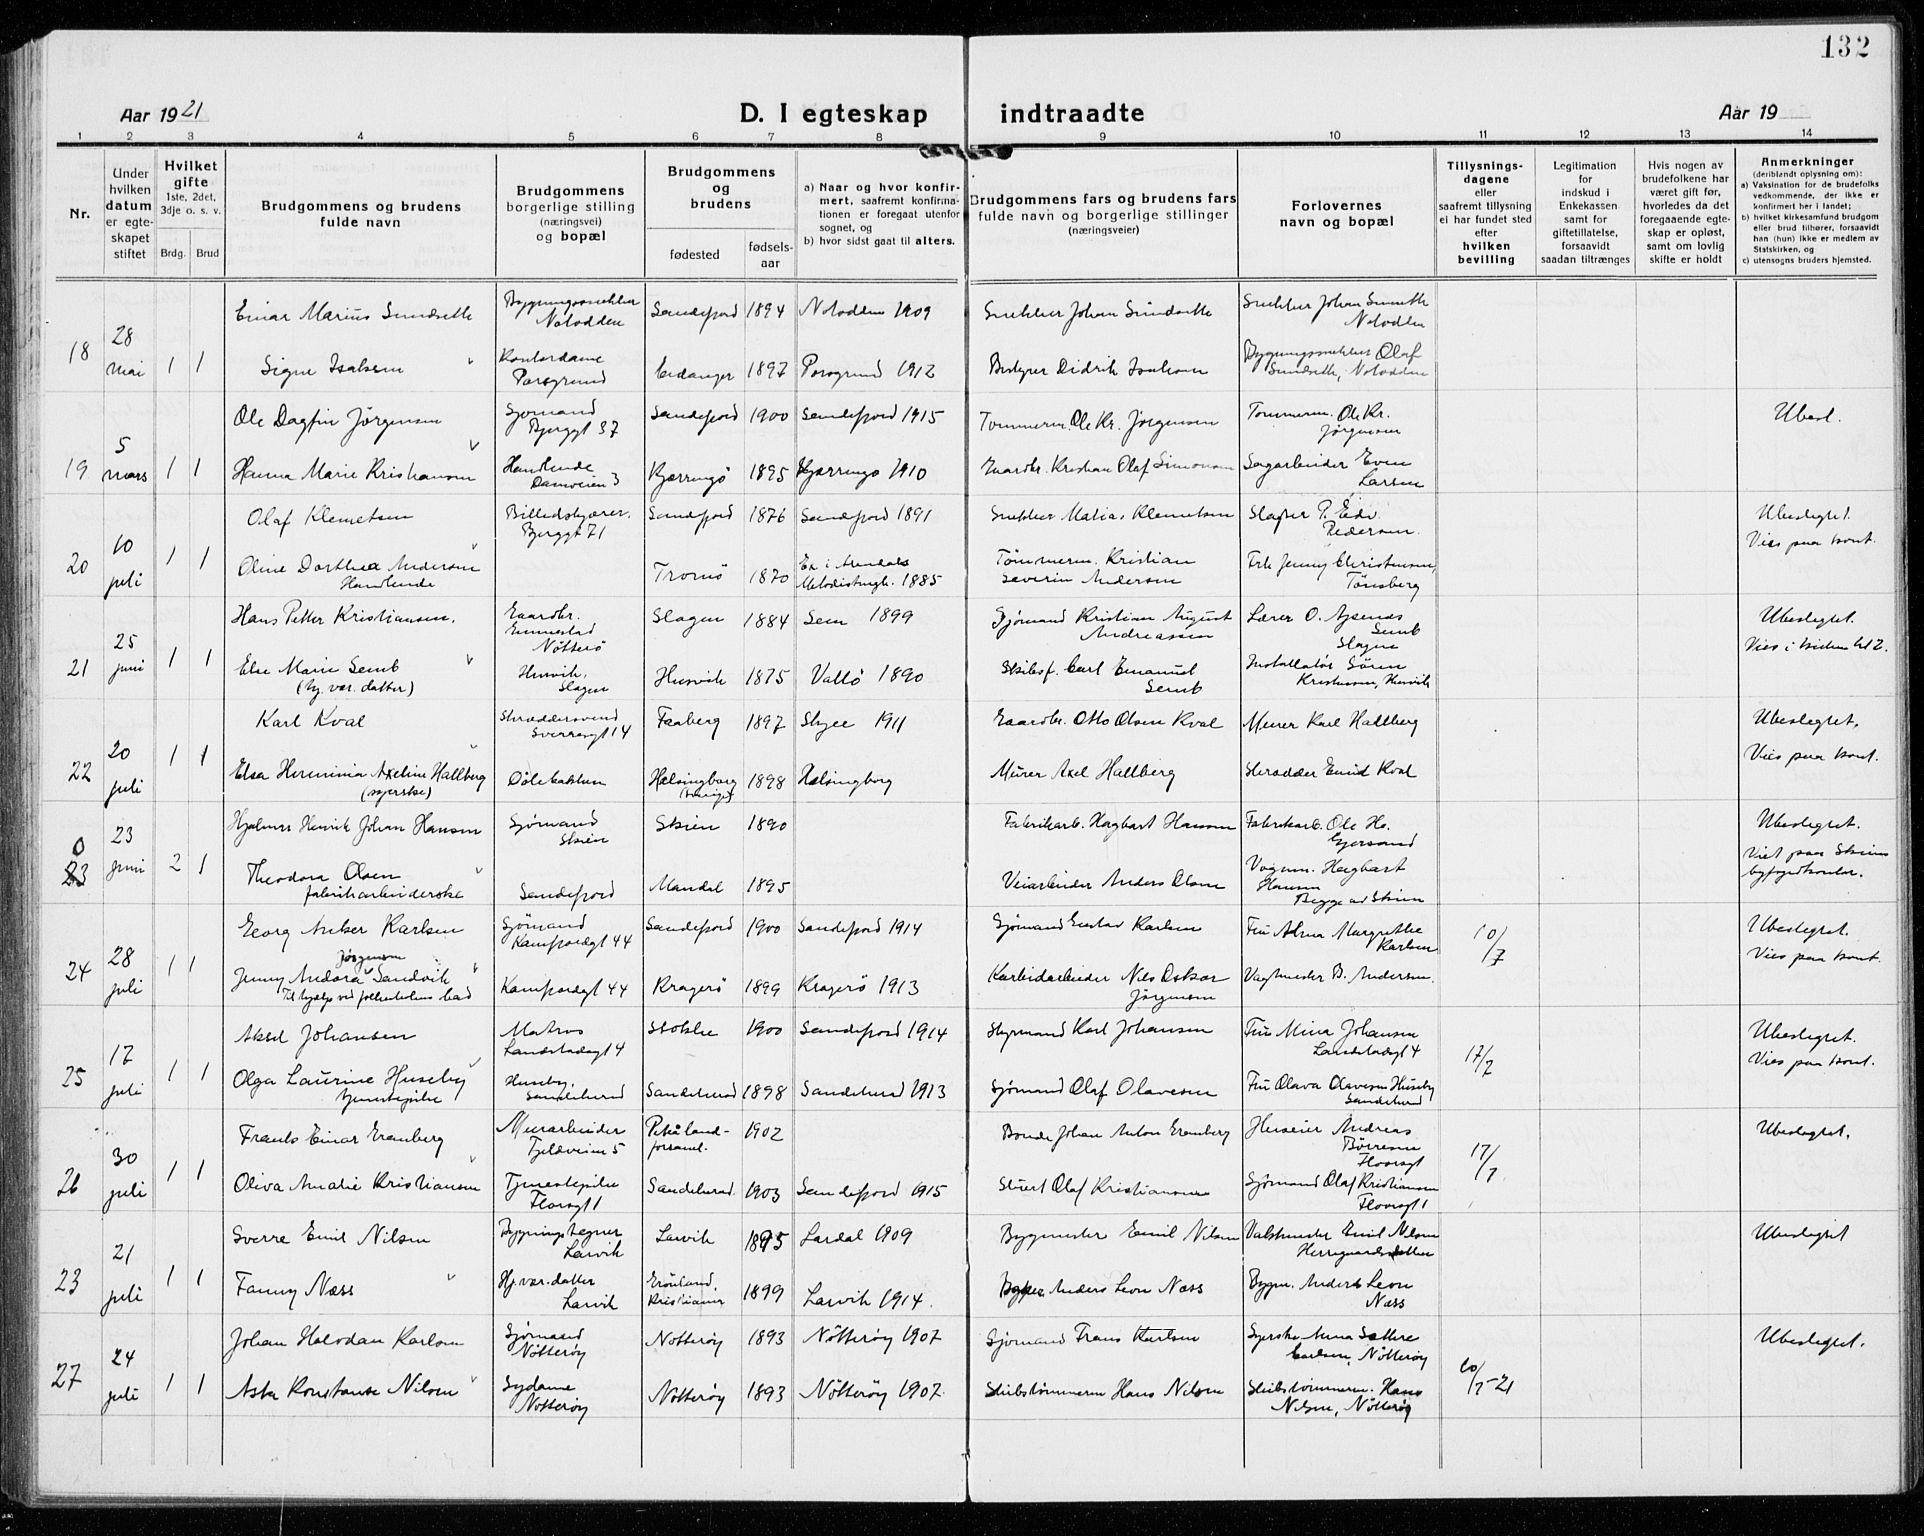 132
Aar 1921
D. I egteskap indtraadte
Aar 19
1 2 3 4 5 6 7 8 9 10 11 12 13 14
Nr.
Under
hvilken
datum
er egte-
skapet
stiftet
Hvilket
gifte
1ste, 2det,
3dje o. s. v.
Brdg. Brud
Brudgommens og brudens
fulde navn
Brudgommens
borgerlige stilling
(næringsvei)
og bopæl
Brudgommens
og
brudens
fødested
fødsels-
aar
a) Naar og hvor konfir-
mert, saafremt konfirma-
tionen er foregaat utenfor
sognet, og
b) hvor sidst gaat til alters.
Brudgommens fars og brudens fars
fulde navn og borgerlige stillinger
(næringsveier)
Forlovernes
navn og bopæl
Tillysnings-
dagene
eller
saafremt tillysning
ei har fundet sted
efter
hvilken
bevilling
Legitimation
for
indskud i
Enkekassen
samt for
giftetillatelse,
forsaavidt
saadan tiltrænges
Hvis nogen av
brudefolkene har
været gift før,
hvorledes da det
foregaaende egte-
skap er opløst,
samt om lovlig
skifte er holdt
Anmerkninger
(deriblandt oplysning om):
a) Vaksination for de brudefolks
vedkommende, der ikke er
konfirmert her i landet;
b) hvilket kirkesamfund brudgom
eller brud tilhører, forsaavidt
han (hun) ikke er medlem av
Statskirken, og
c) utensogns bruders hjemsted.
18
28
mai
1 1
Einar Marius Sundseth
Bygningssnekker
Notodden
Sandefjord 1894 Notodden 1909
Snekker Johan Sundseth
Snekker Johan Sundseth
Notodden
Signe Isaksen
Kontordame
Porsgrund
Eidanger 1897 Porsgrund 1912
Bestyrer Didrik Isaksen
Bygningssnekker Olaf
Sundseth, Notodden
19
5
mars
1 1
Ole Dagfin Jørgensen
Sjømand
Bjerggt 37
Sandefjord 1900 Sandefjord 1915
Tømmerm. Ole Kr. Jørgensen
Tømmerm. Ole Kr.
Jørgensen
Ubesl.
Hanna Marie Kristiansen
Handlende
Damveien 3
Kjærringø 1895 Kjærringø 1910
Gaardbr. Kristian Olaf Simonsen
Sagarbeider Even
Larsen
20
10
juli
1 1
Olaf Klemetsen
Billedskjærer.
Bjerggt 71
Sandefjord 1876 Sandefjord 1891
Snekker Matias Klemetsen
Slagter P. Edv.
Pedersen.
Ubeslegtet.
Vies paa kont.
Oline Dorthea Andersen
Handlende
Tromø 1870
Ex i Arendals
Metodistmgh. 1885
Tømmerm. Kristian
Severin Andersen
Frk Jenny Christensen,
Tønsberg
21
25
juni
1 1
Hans Petter Kristiansen.
Gaardbr.
Ennestad
Nøtterø
Slagen 1884 Sem 1899
Sjømand Kristian August
Andreassen
Lærer O.
Semb
Slagen
Ubeslegtet.
Vies i kirken kl 2.
Else Marie Semb
(hj. vær. datter)
Husvik,
Slagen
Husvik 1875 Vallø 1890
Skibsf. Carl Emanuel
Semb
Installatør Søren
Kristensen, Husvik
22
20
juli
1 1
Karl Kval
Skræddersvend
Sverresgt 14
Faaberg 1897 Skjee 1911
Gaardbr. Otto Olsen Kval
Murer Karl Hallberg
Ubeslegtet.
Vies paa kont.
Elsa Herminia Axeline Hallberg
(syerske)
Dølebakken
Helsingborg
(Sverige)
1898 Helsingborg
Murer Axel Hallberg
Skrædder Emil Kval
0
23
23
juni
2 1
Hjalmar Henrik Johan Hansen
Sjømand
Skien
Skien 1890
Fabrikarb. Hagbart Hansen
Fabrikarb. Ole H.
Gjersand
Ubeslegtet.
Viet paa Skiens
byfogedkontor.
Theodora Olsen
fabrikarbeiderske
Sandefjord
Mandal 1895
Veiarbeider Anders Olsen
Vognm. Hagbart
Hansen
Begge av Skien
24
28
juli
1 1
Georg Anker Karlsen
Sjømand
Kampordgt 44
Sandefjord 1900 Sandefjord 1914
Sjømand Gustav Karlsen
Fru Alma Margrethe
Karlsen
10/7
Ubeslegtet.
Vies paa kont.
Jørgensen
Jenny Andora Sandvik
Til hjælp ved folkeskolens bad
Kampordgt 44
Kragerø 1899 Kragerø 1913
Karbidarbeider Nils Oskar
Jørgensen
Vagtmester B. Andersen.
25
17
juli
1 1
Aksel Johansen
Matros
Landstadsgt 4
Stokke 1900 Sandefjord 1914
Styrmand Karl Johansen
Fru Mina Johansen
Landstadsgt 4
17/7
Ubeslegtet.
Vies paa kont.
Olga Laurine Huseby
tjenestepike
Huseby,
Sandeherad
Sandeherad 1898 Sandeherad 1913
Sjømand Olaf Olavesen
Fru Olava Olavesen Huseby
Sandeherad
26
30
juli
1 1
Frants Einar Granberg
Murarbeider
Fjeldveien 5
1902
Bonde Johan Anton Granberg
Huseier Andreas
Børresen
Floorsgt
17/7
Ubeslegtet.
Oliva Amalie Kristiansen
Tjenestepike
Floorsgt 1
Sandeherad 1903 Sandefjord 1915
Stuert Olaf Kristiansen
Sjømand Olaf Kristiansen
Floorsgt 1
23
21
juli
1 1
Sverre Emil Nilsen
Bygningstegner
Larvik
Larvik 1895 Lardal 1909
Bygmester Emil Nilsen
Valsemester Emil Nilsen
Herregaardsbakken
Ubeslegtet
Fanny Næss
Hj. vær. datter
Larvik
Grønland,
Kristiania
1899 Larvik 1914.
Bygm. Anders Leon Næss
Bygm. Anders Leon
Næss
27
24
juli
1 1
Johan Halvdan Karlsen
Sjømand
Nøtterøy
Nøtterøy 1893 Nøtterøy 1907
Sjømand Frans Karlsen
Syerske Anna Sætre
Carlsen, Nøtterøy
10/7-21
Ubeslegtet.
Asta Konstanse Nilsen
Sydame
Nøtterøy
Nøtterøy 1893 Nøtterøy 1907
Skibstømmerm Hans Nilsen
Skibstømmerm. Hans
Nilsen, Nøtterøy